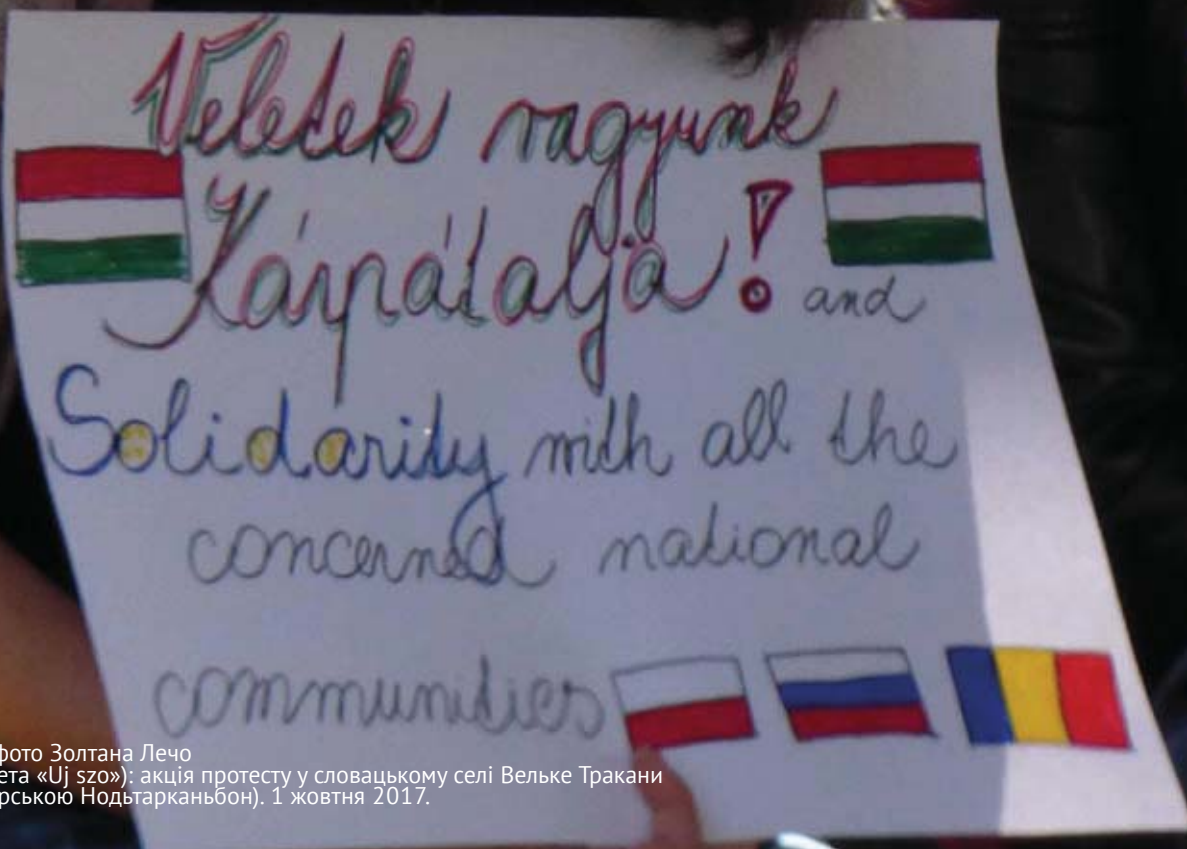 Veletek vagyunk
Kárpátalja! and
Solidarity with all the
concerned national
communities
фото Золтана Лечо
ета «Uj szo»): акція протесту у словацькому селі Вельке Тракани
рською Нодьтарканьбон). 1 жовтня 2017.